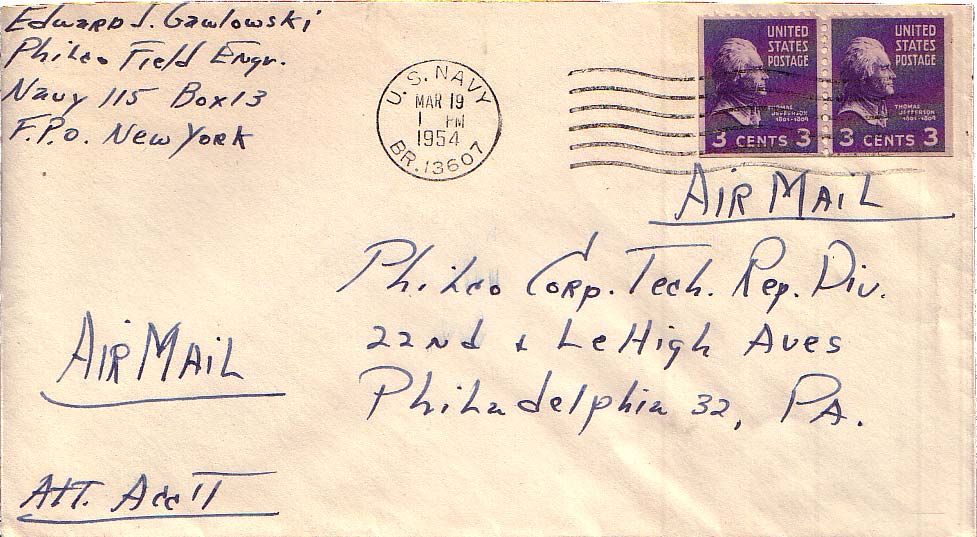 Edward J. Gawlowski
Philco Field Engr.
Navy 115 Box 13
F.P.O. New York
U.S. NAVY
MAR 19
1 PM
1954
BR. 13607
UNITED
STATES
POSTAGE
THOMAS
JEFFERSON
1801-1809
3 CENTS 3
UNITED
STATES
POSTAGE
THOMAS
JEFFERSON
1801-1809
3 CENTS 3
AIR MAIL
Philco Corp. Tech. Rep. Div.
22nd & LeHigh Aves
Philadelphia 32, PA.
AIR MAIL
Att. Acc'T